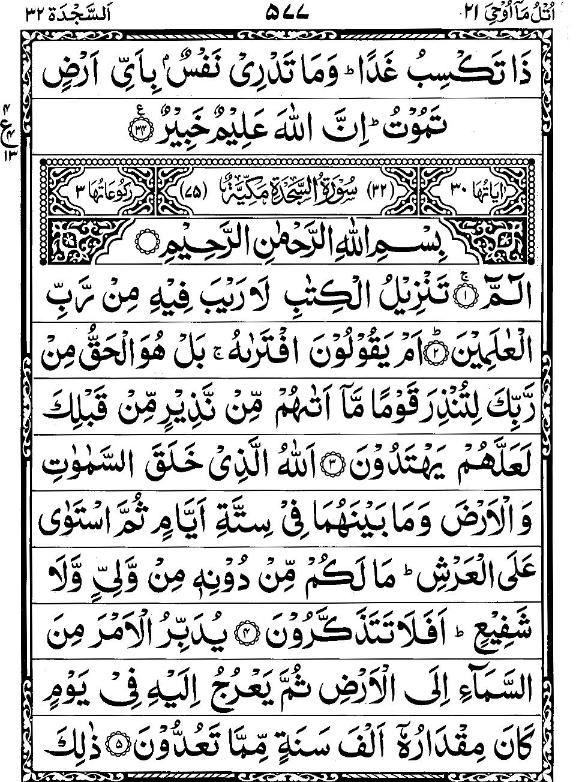 اُتْلُ مَآ اُوْحِیَ ٢١ ٥٧٧ اَلسَّجْدَة ٣٢
ذَا تَكْسِبُ غَدًا ؕ وَمَا تَدْرِیْ نَفْسٌۢ بِاَیِّ اَرْضٍ
تَمُوْتُ ؕ اِنَّ اللّٰهَ عَلِیْمٌ خَبِیْرٌ ۠ ﴿٣٤﴾
٤ ع ٤ ١٣
اٰیَاتُهَا ٣٠ (٣٢) سُوْرَةُ السَّجْدَةِ مَكِّیَّةٌ (٧٥) رُكُوْعَاتُهَا ٣
بِسْمِ اللّٰهِ الرَّحْمٰنِ الرَّحِیْمِ
الٓمّٓ ۚ ﴿١﴾ تَنْزِیْلُ الْكِتٰبِ لَا رَیْبَ فِیْهِ مِنْ رَّبِّ
الْعٰلَمِیْنَ ؕ ﴿٢﴾ اَمْ یَقُوْلُوْنَ افْتَرٰىهُ ۚ بَلْ هُوَ الْحَقُّ مِنْ
رَّبِّكَ لِتُنْذِرَ قَوْمًا مَّاۤ اَتٰىهُمْ مِّنْ نَّذِیْرٍ مِّنْ قَبْلِكَ
لَعَلَّهُمْ یَهْتَدُوْنَ ﴿٣﴾ اَللّٰهُ الَّذِیْ خَلَقَ السَّمٰوٰتِ
وَالْاَرْضَ وَمَا بَیْنَهُمَا فِیْ سِتَّةِ اَیَّامٍ ثُمَّ اسْتَوٰی
عَلَی الْعَرْشِ ؕ مَا لَكُمْ مِّنْ دُوْنِهٖ مِنْ وَّلِیٍّ وَّلَا
شَفِیْعٍ ؕ اَفَلَا تَتَذَكَّرُوْنَ ﴿٤﴾ یُدَبِّرُ الْاَمْرَ مِنَ
السَّمَآءِ اِلَی الْاَرْضِ ثُمَّ یَعْرُجُ اِلَیْهِ فِیْ یَوْمٍ
كَانَ مِقْدَارُهٗۤ اَلْفَ سَنَةٍ مِّمَّا تَعُدُّوْنَ ﴿٥﴾ ذٰلِكَ